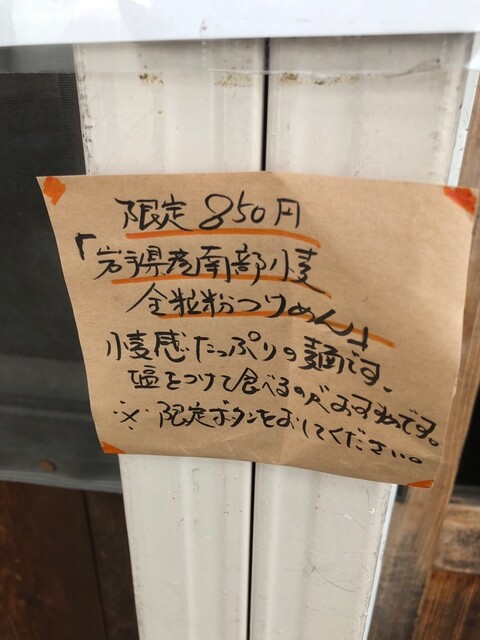 限定 850円
「岩手県産南部小麦
全粒粉つけめん」
小麦感たっぷりの麺です。
塩をつけて食べるのがおすすめです。
※限定ボタンをおしてください。